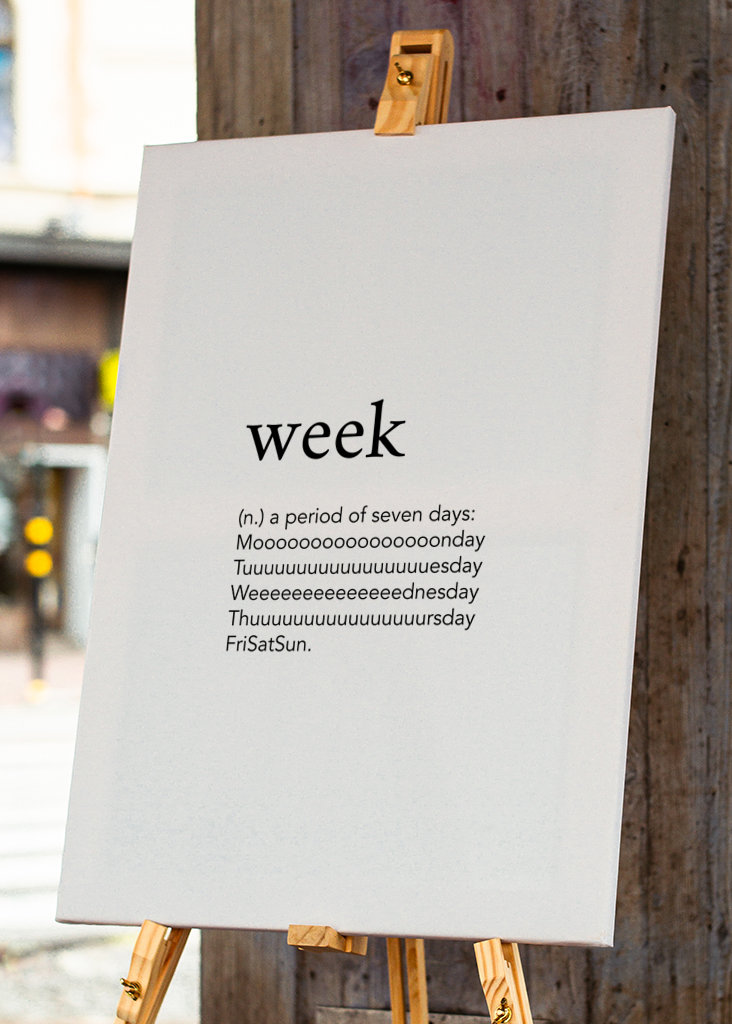 week
(n.) a period of seven days:
Moooooooooooooooonday
Tuuuuuuuuuuuuuuuuuesday
Weeeeeeeeeeeeeednesday
Thuuuuuuuuuuuuuuuursday
FriSatSun.